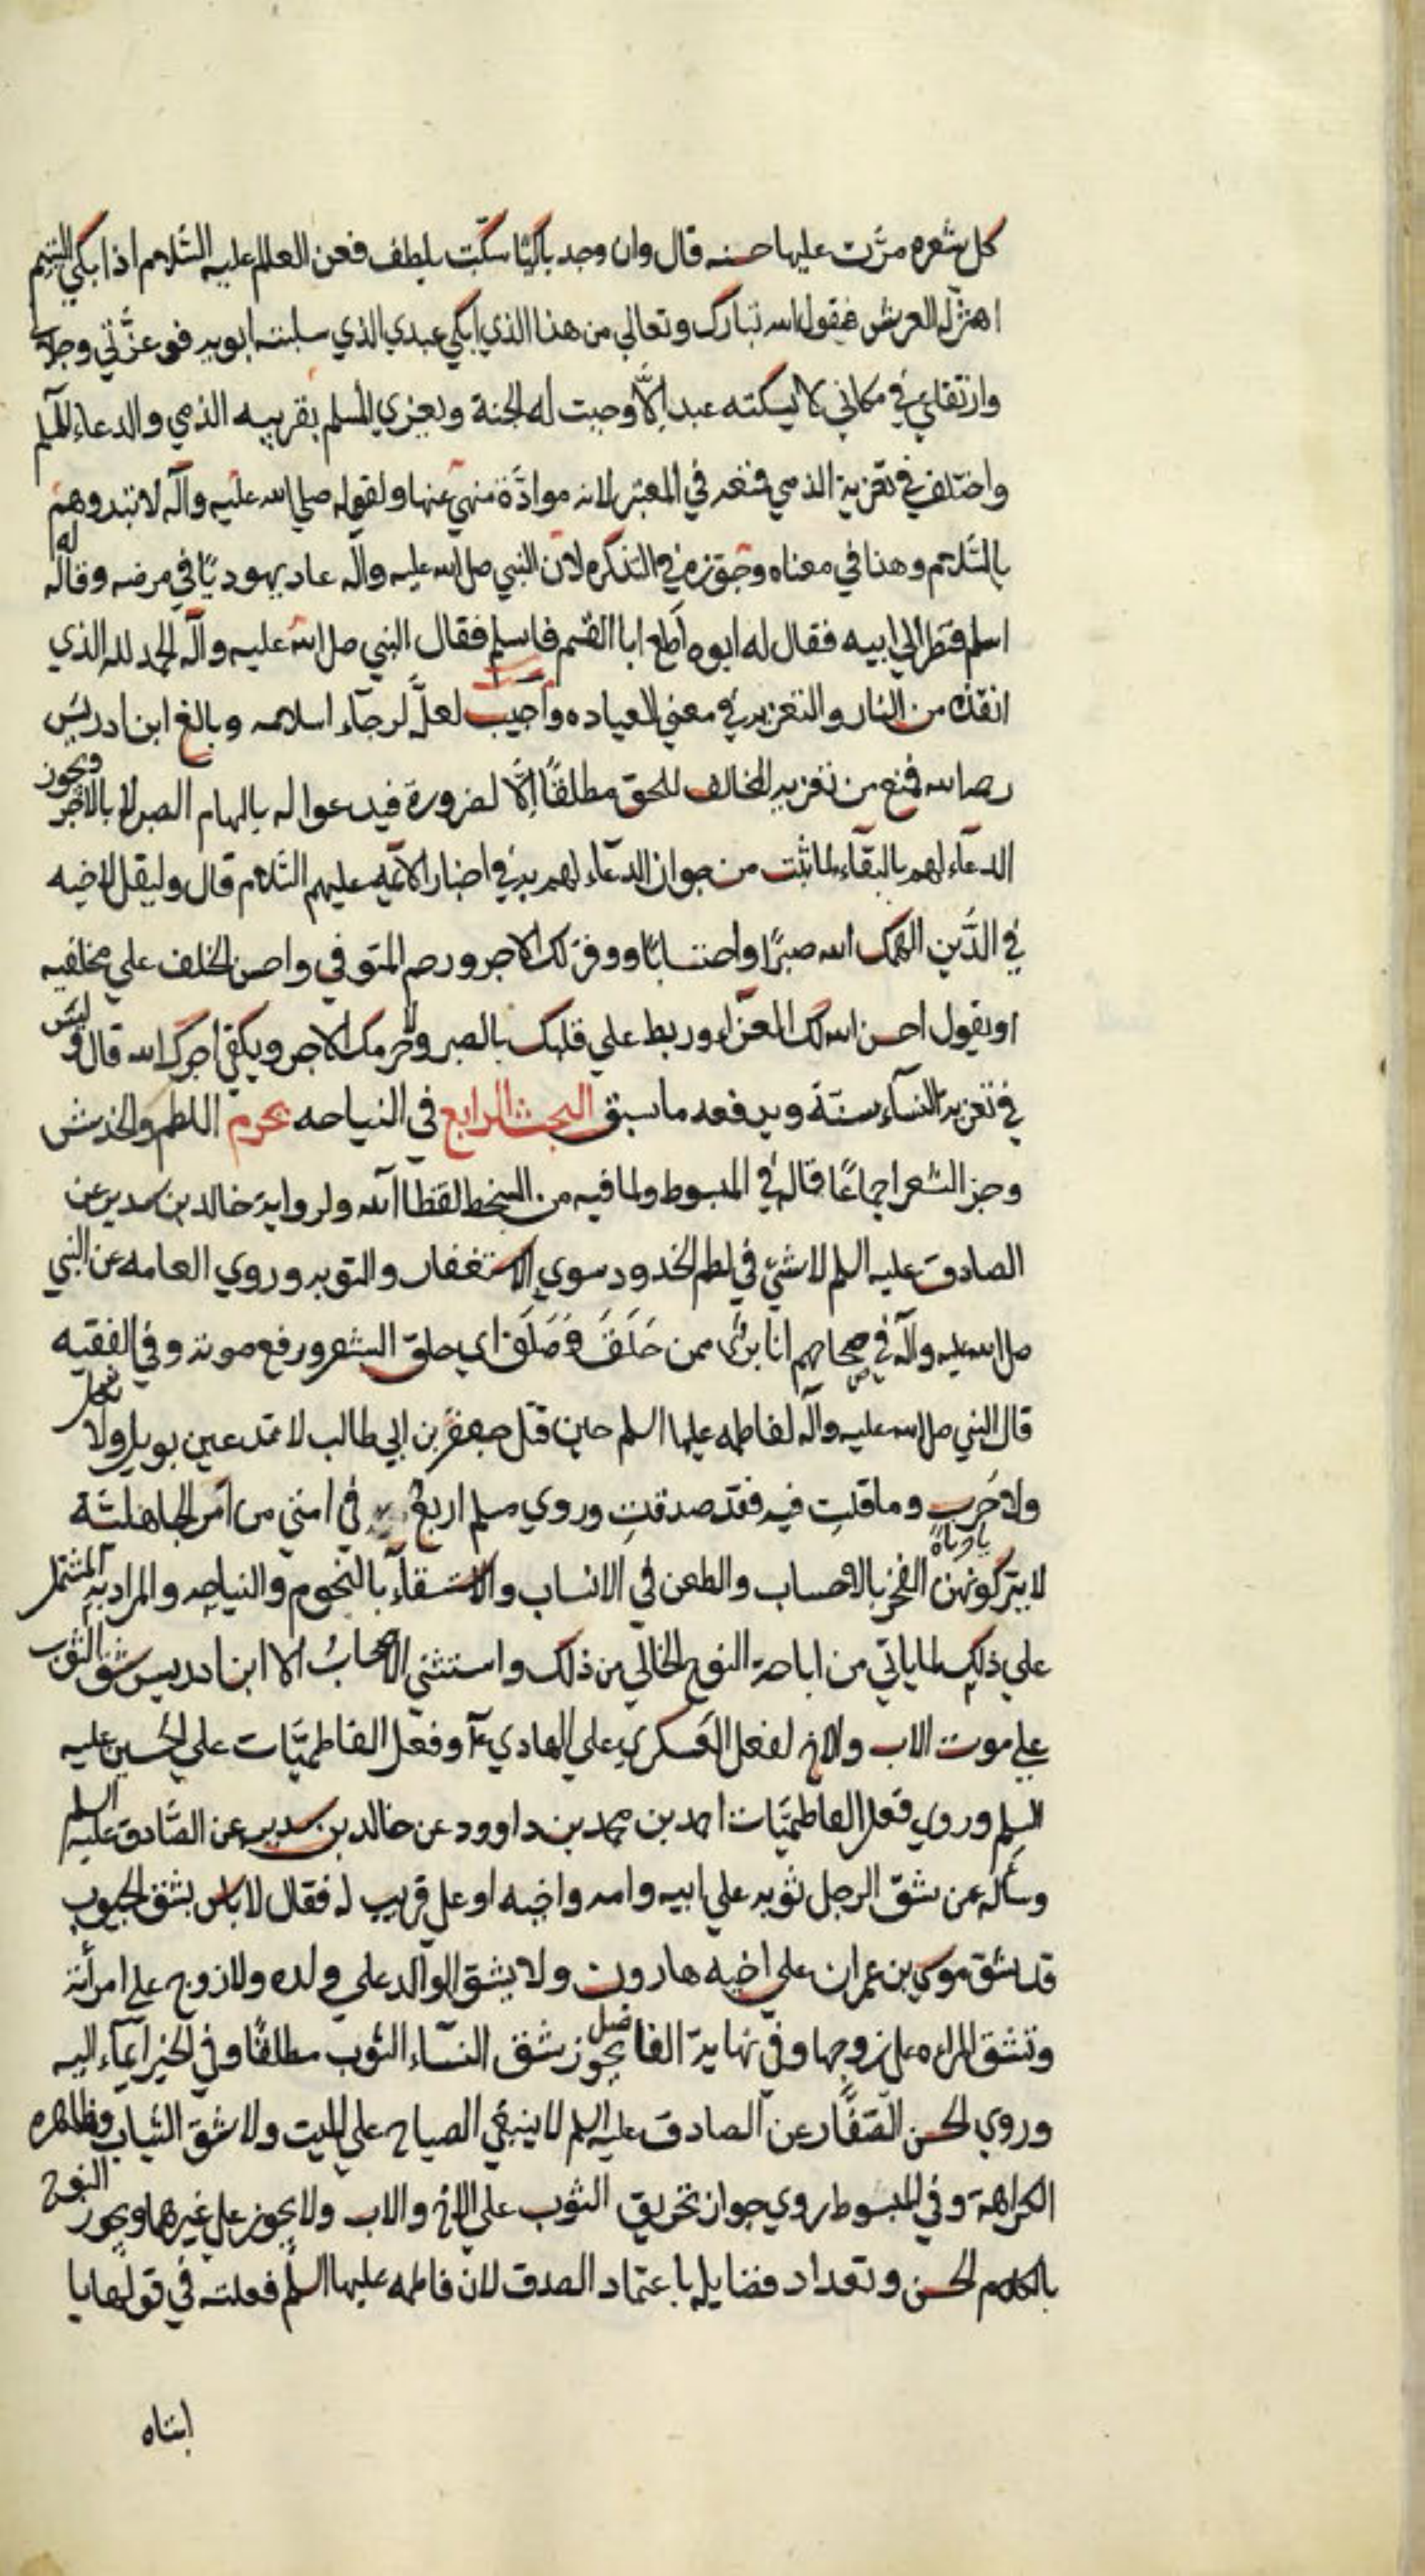 كل شعره مرّت عليها حسنه قال وان وجد باكيًا سكّت بلطف فعن العالم عليه السّلام اذا بكي اليتيم
اهتزّ له العرش فيقول الله تبارك وتعالي من هذا الذي ابكي عبدي الذي سلبته ابويه فوعزّتي وجلالي
وارتفاعي في مكاني لا يسكته عبد الّا وجبت له الجنة ويعزي المسلم بقريبه الذمي والدعاء للمسلم
واختلف في تعزية الذمي فمنعه في المعتبر لانه موادّة منهي عنها ولقوله صلي الله عليه وآله لا تبدوهم
بالسّلام وهذا في معناه وجوّزه في التذكره لان النبي صلي الله عليه وآله عاد يهوديًا في مرضه وقال له
اسلم فنظر الي ابيه فقال له ابوه أطع ابا القسم فاسلم فقال النبي صلي الله عليه وآله الحمد لله الذي
انقذه من النار والتعزيه في معني العياده وأجيب لعلّ لرجاء اسلامه وبالغ ابن ادريس
رحمه الله فمنع من تعزيه المخالف للحق مطلقًا الّا لضرورة فيدعوا له بالهام الصبر لا بالاجر ويجوز
الدعاء لهم بالبقاء لما ثبت من جواز الدعاء لهم به في اخبار الائمه عليهم السّلام قال وليقل لاخيه
في الدّين الهمك الله صبرًا واحتسابًا ووفر لك الاجر ورحم المتوفي واحسن الخلف علي مخلفيه
او يقول احسن الله لك العزاء وربط علي قلبك بالصبر ولا حرمك الاجر ويكفي اجرك الله قال وليس
في تعزية النساء سنّة ويدفعه ما سبق البحث الرابع في النياحه يحرم اللطم والخدش
وجز الشعر اجماعًا قاله في المبسوط ولما فيه من السخط لقضاء الله ولرواية خالد بن سدير عن
الصادق عليه السلم لا شيء في لطم الخدود سوي الاستغفار والتوبه وروي العامه عن النبي
صلي الله عليه وآله في صحاحهم انا برئ ممن حَلَقَ وَصَلَقَ اي حلق الشعر ورفع صوته وفي الفقيه
قال النبي صلي الله عليه وآله لفاطمه عليها السلم حين قتل جعفر بن ابي طالب لا تدعين بويل ولا ثكل
ولا حَرَب وما قلتِ فيه فقد صدقتِ وروي مسلم اربع في امتي من امر الجاهلية
لا يتركونهن الفخر بالاحساب والطعن في الانساب والاستسقاء بالنجوم والنياحه والمراد به المشتمل
علي ذلك لما ياتي من اباحة النوح الخالي من ذلك واستثني الاصحابُ الا ابن ادريس شق الثوب
علي موت الاب والاخ لفعل العسكري علي الهادي ع وفعل الفاطميّات علي الحسين عليه
السلم وروي فعل الفاطميّات احمد بن محمد بن داوود عن خالد بن سدير عن الصّادق عليه السلم
وسأله عن شق الرجل ثوبه علي ابيه وامه واخيه او علي قريب له فقال لا باس بشق الجيوب
قد شق موسي بن عمران علي اخيه هارون ولا يشق الوالد علي ولده ولا زوج علي امرأته
وتشق المراه علي زوجها وفي نهاية الفاضل يجوز شق النسآء الثوب مطلقًا وفي الخبر ايماء اليه
وروي الحسن الصّفّار عن الصادق عليه السلم لا ينبغي الصياح علي الميت ولا شق الثياب وظاهره
الكراهة وفي المبسوط روي جواز تخريق الثوب علي الاخ والاب ولا يجوز علي غيرهما ويجوز النوح
بالكلام الحسن وتعداد فضايله باعتماد الصدق لان فاطمه عليها السلم فعلته في قولها يا
ابتاه